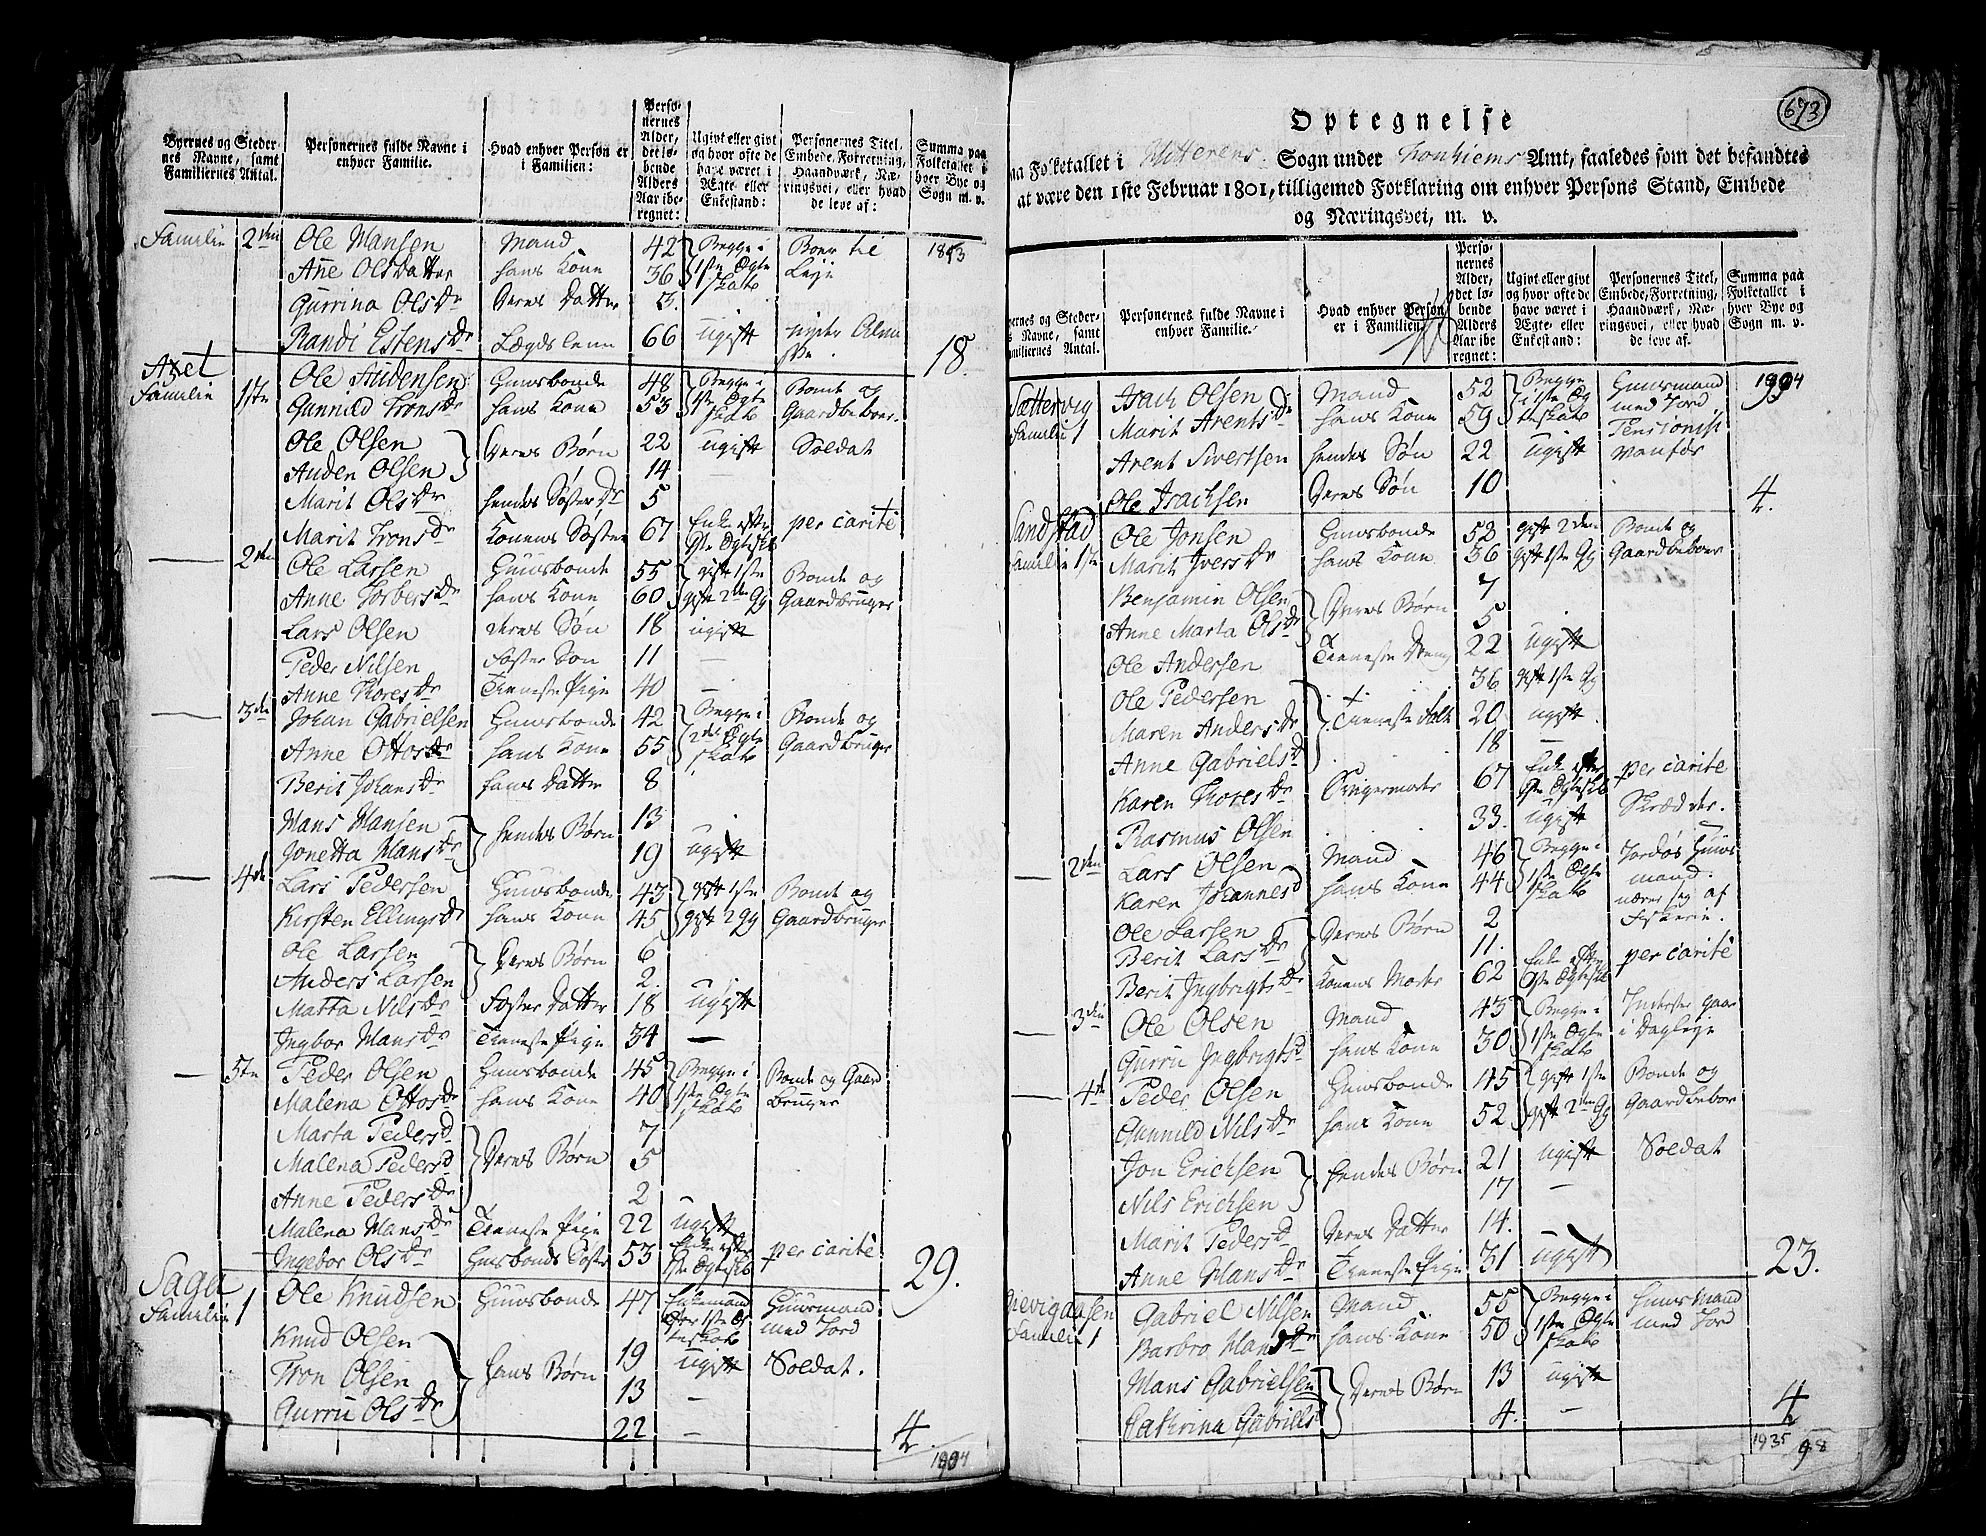 Byernes og Steder-
nes Navne, samt
Familiernes Antal.
Personernes fulde Navne i
enhver Familie.
Hvad enhver Person er
i Familien:
Perso-
nernes
Alder,
det lø-
bende
Alders
Aar ibe-
regnet:
Ugivt eller givt
og hvor ofte de
have været i
Ægte- eller
Enkestand:
Personernes Titel,
Embede, Forretning,
Haandværk, Næ-
ringsvei, eller hvad
de leve af:
Summa paa
Folketallet i
hver Bye og
Sogn m. v.
Familie 2den Ole Mansen Mand 42 Begge i Boer til
Ane Olsdatter hans Kone 36 1ste Ægte Leje
skab
Gurrina Olsdr Deres Datter 3.
Randi Estensdr Lægdslem 66 ugift nyder Alm
18.
Axet
Familie 1ste Ole Audensen Huusbonde 48 Begge i Bonde og
Gunnild Tronsdr hans Kone 53 1ste Ægte Gaardbeboer
skab
Ole Olsen Deres Børn 22 ugift Soldat
Auden Olsen 14
Marit Olsdr hendes Søsterdr 5
Marit Tronsdr Konens Søster 67 Enke efter per carité
1ste Ægtesk
— 2den Ole Larsen Huusbonde 55 gift 1ste Bonde og
Anne Torbersdr hans Kone 60 gift 2den Gg Gaardbruger
Lars Olsen deres Søn 18 ugift
Peder Nilsen Foster Søn 11 —
Anne Thoresdr Tieneste Pige 40 —
— 3den Johan Gabrielsen Huusbonde 42 Begge i Bonde og
Anne Ottosdr hans Kone 55 2det Ægte Gaardbruger
skab
Berit Johansdr hans Datter 8
Mans Mansen hendes Børn 13
Jonetta Mansdr 19 ugift
— 4de Lars Pedersen Huusbonde 43 gift 1ste Bonde og
Kirsten Ellingsdr hans Kone 45 gift 2 Gg Gaardbruger
Ole Larsen Deres Børn 6
Anders Larsen 2.
Marta Nilsdr Foster Datter 18 ugift
Ingbor Mansdr Tieneste Pige 34 —
— 5te Peder Olsen Huusbonde 45 Begge i Bonde og Gaard
Malena Ottosdr hans Kone 40 1ste Ægte bruger
skab
Marta Pedersd 7
Malena Pedersd Deres Børn 5
Anne Pedersdr 2
Malena Mansdr Tieneste Pige 22 ugift
Ingebor Olsdr Husbonds Søster 53 Enke efter per carité
1ste Ægtesk
29.
Saga
Familie 1 Ole Knudsen Huusbonde 47 Enkemand Huusmand
efter 1ste Æg med Jord
teskab
Knud Olsen 19 ugift Soldat.
Tron Olsen hans Børn 13 —
Gurru Olsdr 22 —
4.
673
Optegnelse
paa Folketallet i Hitterens Sogn under Tronhiems Amt, saaledes som det befandtes
at være den 1ste Februar 1801, tilligemed Forklaring om enhver Persons Stand, Embede
og Næringsvei, m. v.
Byernes og Steder-
nes Navne, samt
Familiernes Antal.
Personernes fulde Navne i
enhver Familie.
Hvad enhver Person
er i Familien:
Perso-
nernes
Alder,
det lø-
bende
Alders
Aar ibe-
regnet:
Ugivt eller givt
og hvor ofte de
have været i
Ægte- eller
Enkestand:
Personernes Titel,
Embede, Forretning,
Haandværk, Næ-
ringsvei, eller hvad
de leve af.
Summa paa
Folketallet i
hver Bye og
Sogn m. v.
Sættervig Isach Olsen Mand 52 Begge Huusmand
Familie 1 Marit Arentsdr hans Kone 59 i 1ste Æg med Jord
teskab Pensionist
Arent Sivertsen hendes Søn 22 ugift vanfør
Ole Isachsen Deres Søn 10
4.
Sandstad Ole Jonsen Huusbonde 52 gift 2den Bonde og
Familie 1ste Marit Iversdr hans Kone 36 gift 1ste Gg Gaardbeboer
Benjamin Olsen Deres Børn 7
Anne Marta Olsdr 5
Ole Andersen Tieneste Dreng 22 ugift
Ole Pedersen 36 gift 1ste Gg
Maren Andersdr Tieneste Folk 20 ugift
Anne Gabrielsd 18 —
Karen Thoresdr Svigermoder 67 Enke efter per carité
1ste Ægtesk
Rasmus Olsen 33. ugift Skrædder.
— 2den Lars Olsen Mand 46 Begge i Jordløs Huus
Karen Johannesd hans Kone 44 1ste Ægte mand.
skab nærer sig af
Ole Larsen Deres Børn 2 Fiskerie.
Berit Larsdr 11.
Berit Ingbrigtsdr Konens Moder 62 Enke efter per carité
1ste Ægtesk
— 3die Ole Olsen Mand 43 Begge i Inderster gaar
Gurru Ingbrigtsd hans Kone 30 1ste Ægte i Dagleje
skab
— 4de Peder Olsen Huusbonde 45 gift 1ste Bonde og
Gunnild Nilsdr hans Kone 52 gift 2den Gg Gaardbeboer
Jon Erichsen hendes Børn 21 ugift Soldat
Nils Erichsen 17 —
Marit Pedersd Deres Datter 14. —
Anne Mansdr Tieneste Pige 31 ugift
23.
Familie 1 Gabriel Nilsen Mand 55 Begge i Huusmand
Barbro Mansdr hans Kone 50 1ste Ægte med Jord
skab
Mans Gabrielsen Deres Børn 13 ugift
Cathrina Gabriels 4. —
4
1935